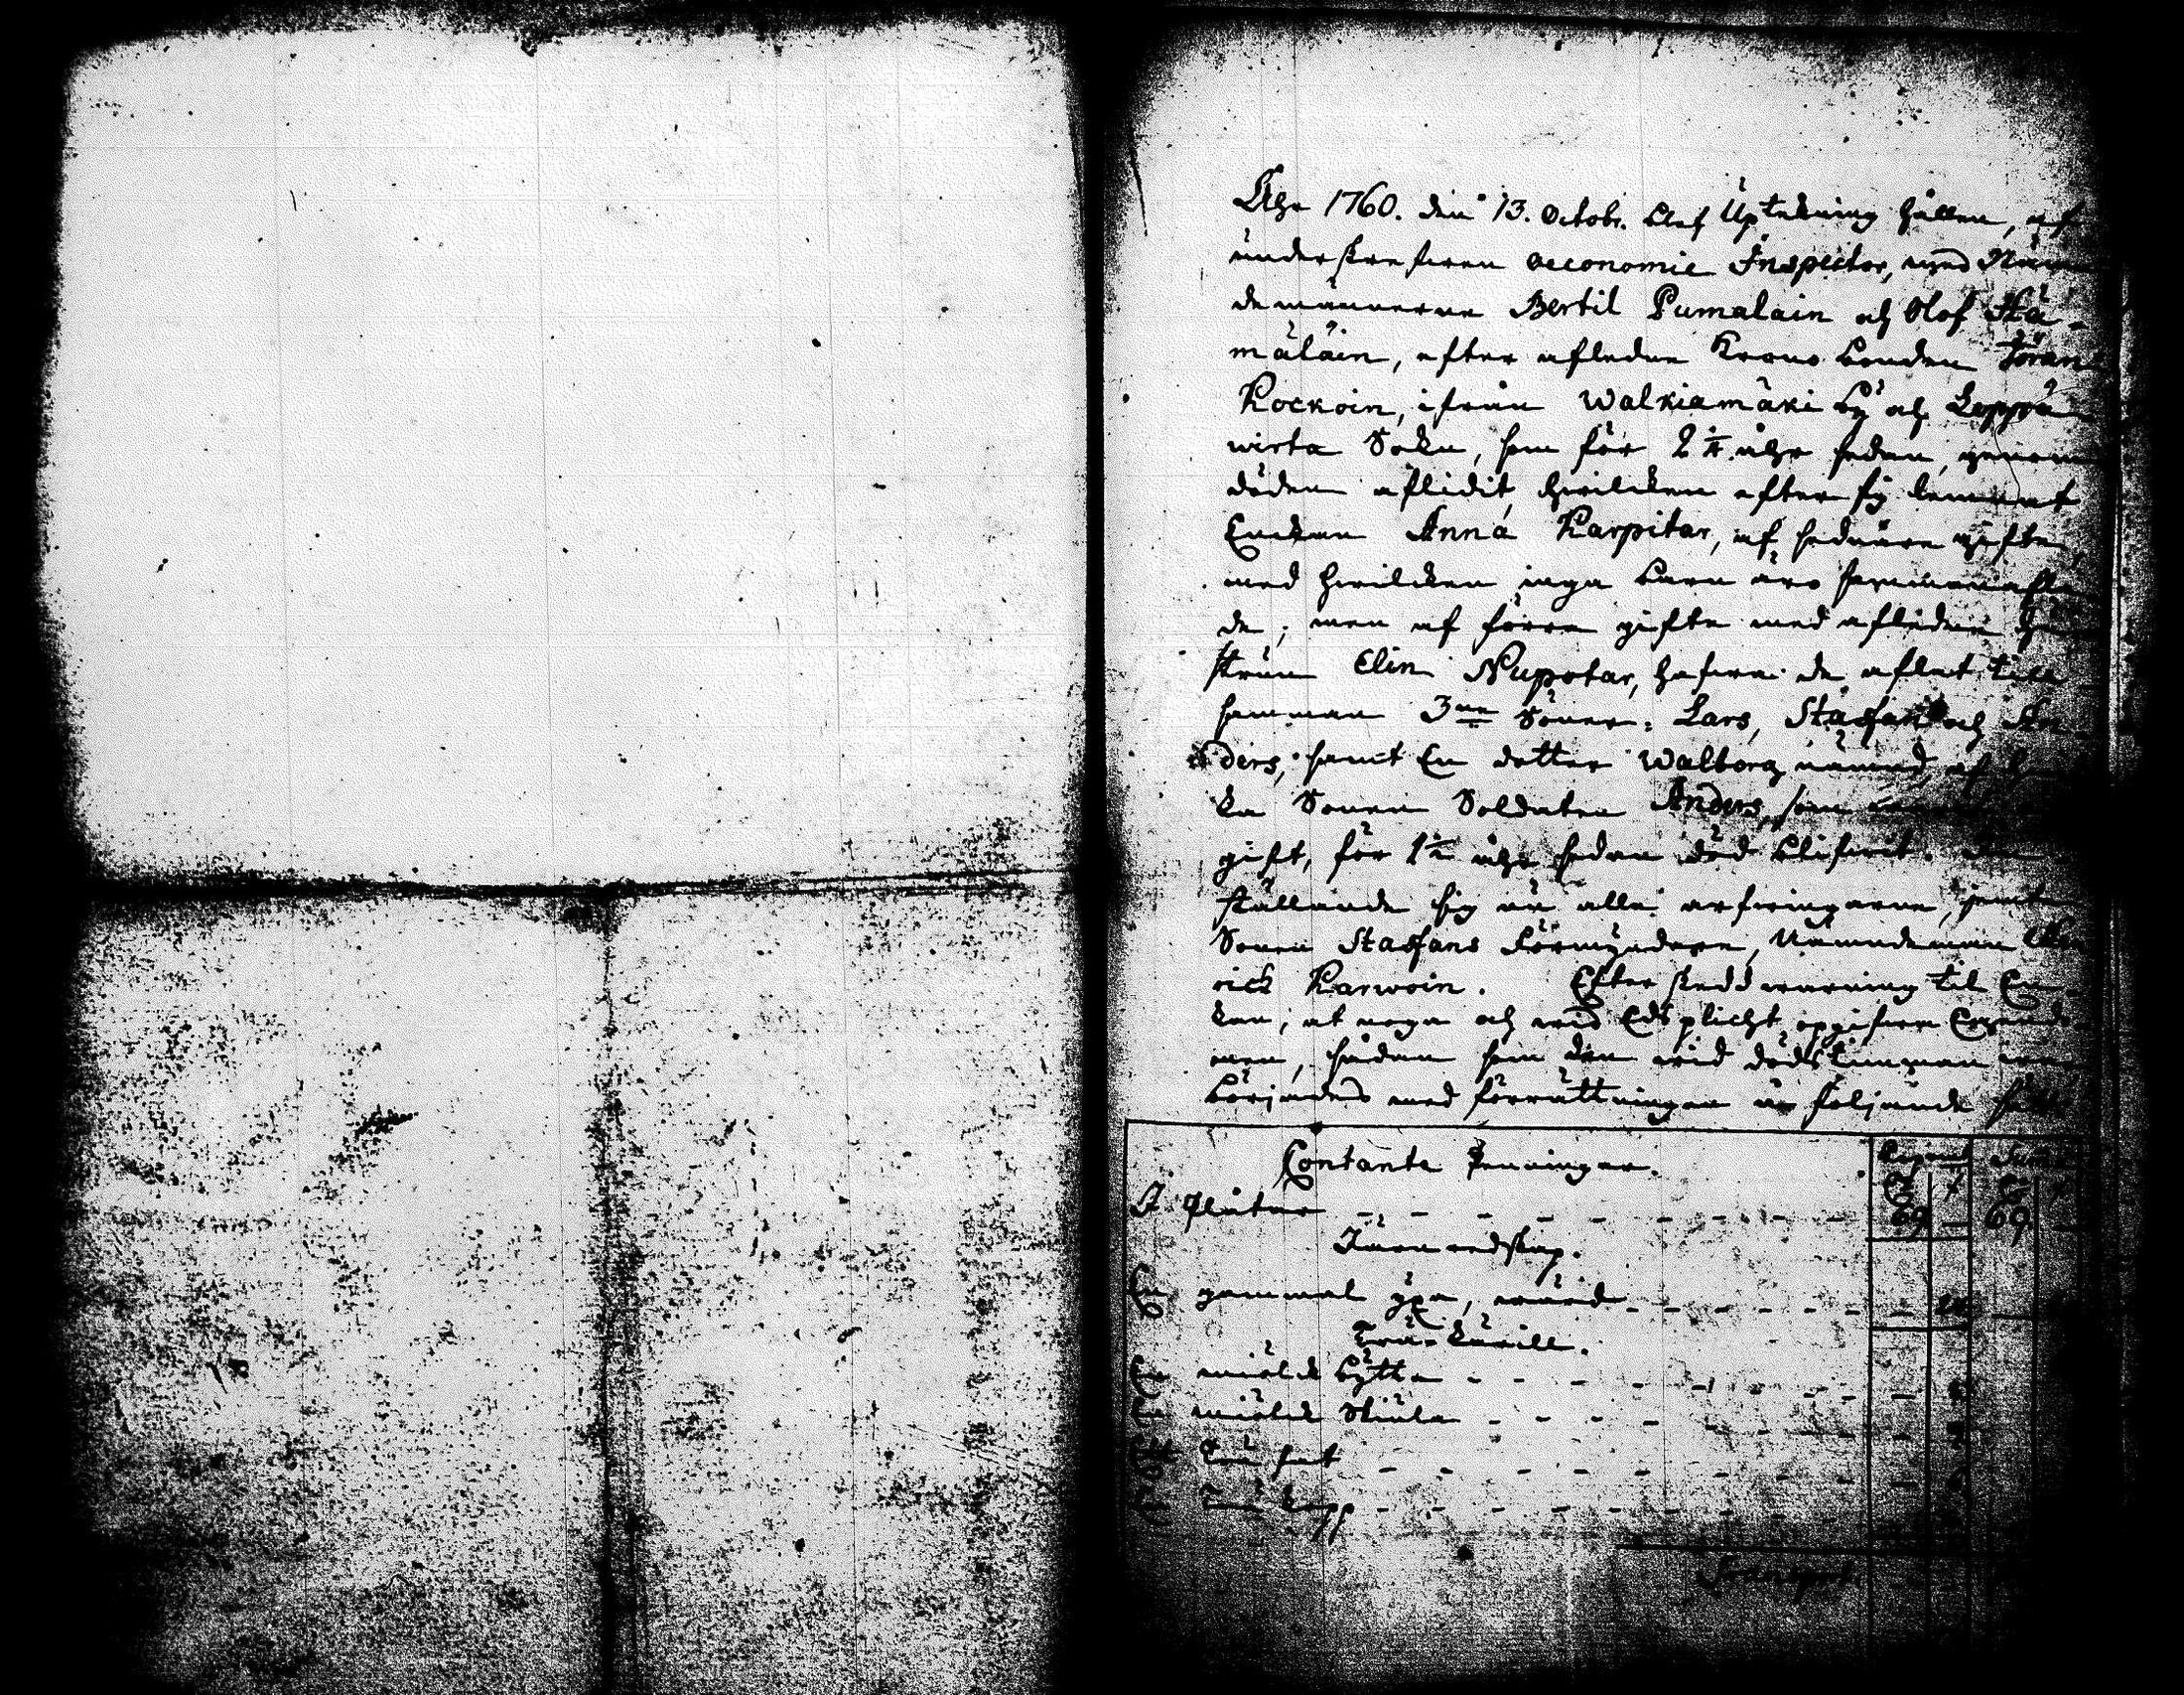 Åhr 1760. den 13. Octobr. blef Uptekning hållen, af
underskrefwen oeconomie Inspector, med Näm
demännerne Bertil Pumalain och Olof Hä-
mäläin, efter afledne Krono bonden Jöran
Kockoin, ifrån Walkiamäki by och Leppä
wirta Sokn, som för 2½ åhr sedan, genom
döden aflidit, hwilcken efter sig lemnat
Enckan Anna Karpitar, af sednare gifte,
med hwilcken inga barn äro sammanafla
de; men af förra gifte med afledne hu
strun Elin Nupotar, hafwa de aflat till
samman 3ne Söner: Lars, Staffan och An
ders, samt En dotter Walborg nämnd, af
ka Sonen Soldaten Anders, som
gift, för 1½ åhr sedan död blifwit.
ställande sig nu alla arfwingarne, jemte
Sonen Staffans Förmyndare, Nämndeman
rick Karwoin. Efter skedd warning til En-
kan, at noga och wid Eds plicht opgifwa Egendo
men, sådan som den wid dödstimman war
börjades med förrättningen på följande sätt
Contante Penningar.
Plåtar - - - 69 — 69 —
Järn redskap.
En gammal yxa, wärd - - -
Trä kärill.
En miölck bytta - - -
En miölck Stiula - - -
Ett Trä fat - - -
En Trä kopp - - -
Transport.